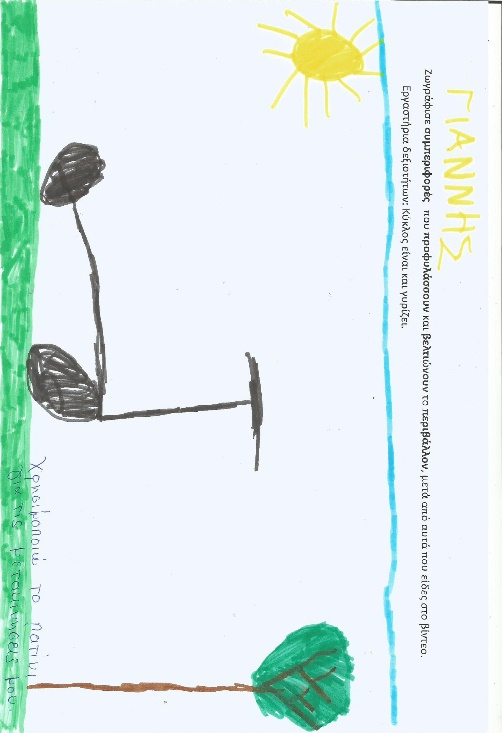 ΓΙΑΝΝΗΣ
Ζωγράφισε συμπεριφορές που προφυλάσσουν και βελτιώνουν το περιβάλλον, μετά από αυτά που είδες στο βίντεο.
Εργαστήρια δεξιοτήτων: Κύκλος είναι και γυρίζει.
Χρησιμοποιώ το πατίνι
για τις μετακινήσεις μου.